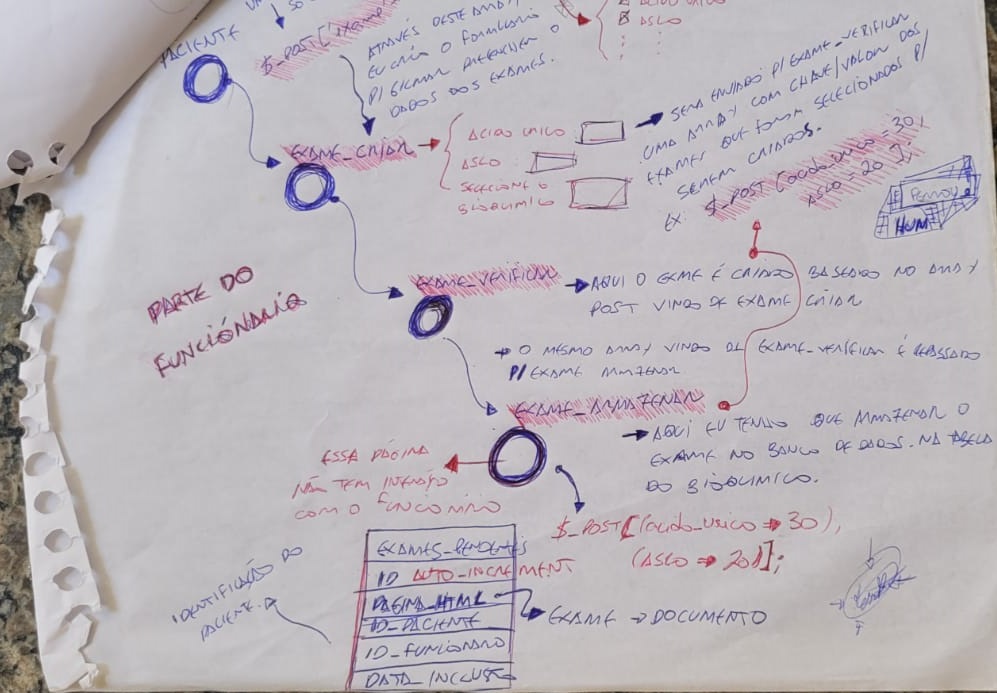 PACIENTE
$_POST['exame
ATRAVÉS DESTE ARRAY
EU CRIO O FORMULARIO
P/ BIOMAR PREENCHER O
DADOS DOS EXAMES.
ASLO
EXAME_CRIAR
ACIDO URICO
ASLO
SELECIONE O
BIOQUIMICO
SERÁ ENVIADO P/ EXAME_VERIFICAR
UMA ARRAY COM CHAVE/VALOR DOS
EXAMES QUE FORAM SELECIONADOS P/
SEREM CRIADOS.
EX: $_POST[acido_urico = 30,
ASLO = 20];
HUM
PARTE DO
FUNCIÓNARIO
EXAME_VERIFICAR
AQUI O EXAME É CRIADO BASEADO NO ARRAY
POST VINDO DE EXAME CRIAR
O MESMO ARRAY VINDO DE EXAME_VERIFICAR É REPASSADO
P/ EXAME ARMAZENAR
EXAME_ARMAZENAR
AQUI EU TENHO QUE ARMAZENAR O
EXAME NO BANCO DE DADOS. NA TABELA
DO BIOQUIMICO.
ESSA PÁGINA
NÃO TEM INTERAÇÃO
COM O FUNCIONARIO
$_POST[(acido_urico → 30),
(ASLO → 20)];
EXAMES_PENDENTES
ID AUTO_INCREMENT
PAGINA_HTML
EXAME → DOCUMENTO
ID_PACIENTE
ID_FUNCIONARIO
DATA_INCLUSÃO
IDENTIFICAÇÃO DO
PACIENTE.